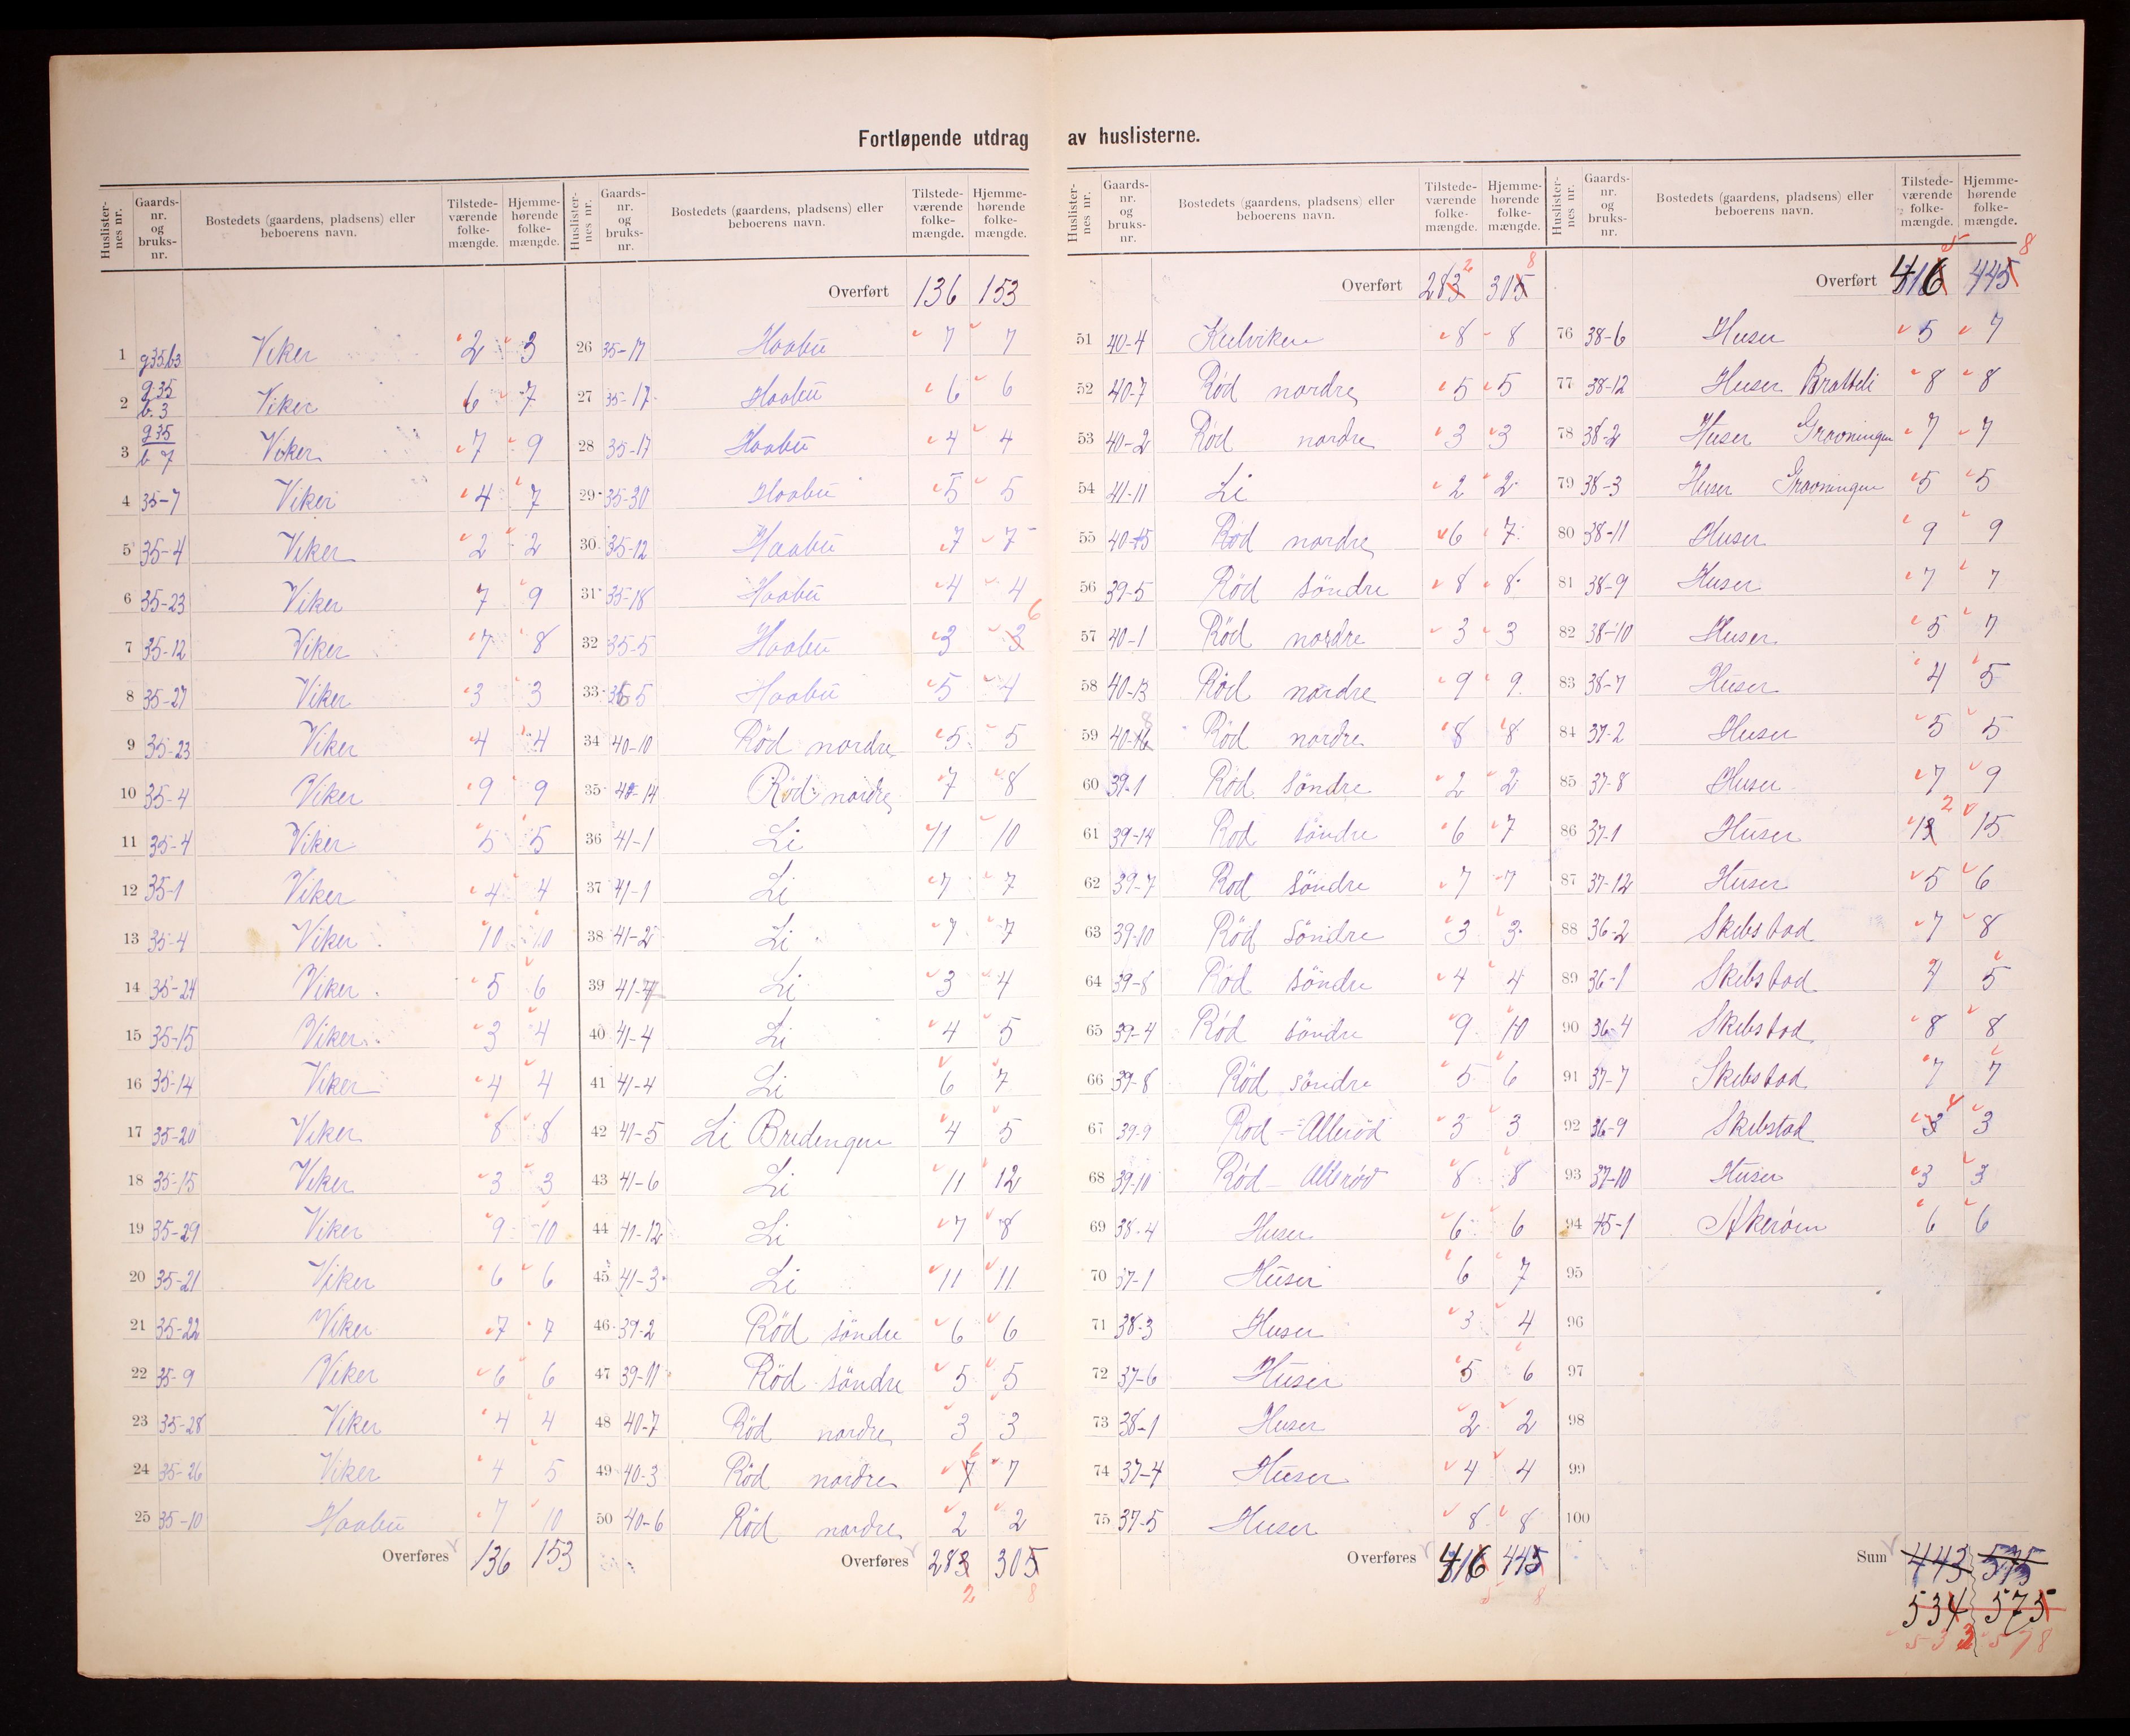 Fortløpende utdrag av huslisterne.
Huslisternes nr. Gaards-nr. og bruks-nr. Bostedets (gaardens, pladsens) eller beboerens navn. Tilstedeværende folkemængde. Hjemmehørende folkemængde.
1 g35b3 Viker 2 3
2 g.35 b.3 Viker 6 7
3 g35 b7 Viker 7 9
4 35-7 Viker 4 7
5 35-4 Viker 2 2
6 35-23 Viker 7 9
7 35-12 Viker 7 8
8 35-27 Viker 3 3
9 35-23 Viker 4 4
10 35-4 Viker 9 9
11 35-4 Viker 5 5
12 35-1 Viker 4 4
13 35-4 Viker 10 10
14 35-24 Viker 5 6
15 35-15 Viker 3 4
16 35-14 Viker 4 4
17 35-20 Viker 8 8
18 35-15 Viker 3 3
19 35-29 Viker 9 10
20 35-21 Viker 6 6
21 35-22 Viker 7 7
22 35-9 Viker 6 6
23 35-28 Viker 4 4
24 35-26 Viker 4 5
25 35-10 Haabu 7 10
Overføres 136 153
Huslisternes nr. Gaards-nr. og bruks-nr. Bostedets (gaardens, pladsens) eller beboerens navn. Tilstedeværende folkemængde. Hjemmehørende folkemængde.
Overført 136 153
26 35-17 Haabu 7 7
27 35-17 Haabu 6 6
28 35-17 Haabu 4 4
29 35-30 Haabu 5 5
30 35-12 Haabu 7 7
31 35-18 Haabu 4 4
32 35-5 Haabu 3 3 6
33 35-5 Haabu 5 4
34 40-10 Rød nordre 5 5
35 40-14 Rød nordre 7 8
36 41-1 Li 11 10
37 41-1 Li 7 7
38 41-2 Li 7 7
39 Li 3 4
40 41-4 Li 4 5
41 41-4 Li 6 7
42 41-5 Li Bredengen 4 5
43 41-6 Li 11 12
44 41-12 Li 7 8
45 41-3 Li 11 11
46 39-2 Rød söndre 6 6
47 39-11 Rød söndre 5 5
48 40-7 Rød nordre 3 3
49 40-3 Rød nordre 7 6 7
50 40-6 Rød nordre 2 2
Overføres 283 305
2 8
Huslisternes nr. Gaards-nr. og bruks-nr. Bostedets (gaardens, pladsens) eller beboerens navn. Tilstedeværende folkemængde. Hjemmehørende folkemængde.
Overført 283 2 305 8
51 40-4 Kulviken 8 8
52 40-7 Rød nordre 5 5
53 40-2 Rød nordre 3 3
54 41-11 Li 2 2
55 40-15 Rød nordre 6 7
56 39-5 Rød söndre 8 8
57 40-1 Rød nordre 3 3
58 40-13 Rød nordre 9 9
59 Rød nordre 8 8
60 39-1 Rød söndre 2 2
61 39-14 Rød söndre 6 7
62 39-7 Rød söndre 7 7
63 39-10 Rød söndre 3 3
64 39-8 Rød söndre 4 4
65 39-4 Rød söndre 9 10
66 39-8 Rød söndre 5 6
67 39-9 Rød - Allerød 3 3
68 39-10 Rød - Allerød 8 8
69 38-4 Huser 6 6
70 37-1 Huser 6 7
71 38-3 Huser 3 4
72 37-6 Huser 5 6
73 38-1 Huser 2 2
74 37-4 Huser 4 4
75 37-5 Huser 8 8
Overføres 416 445
5 8
Huslisternes nr. Gaards-nr. og bruks-nr. Bostedets (gaardens, pladsens) eller beboerens navn. Tilstedeværende folkemængde. Hjemmehørende folkemængde.
Overført 416 5 445 8
76 38-6 Huser 5 7
77 38-12 Huser Bratteli 8 8
78 38-2 Huser Gravningen 7 7
79 38-3 Huser Gravningen 5 5
80 38-11 Huser 9 9
81 38-9 Huser 7 7
82 38-10 Huser 5 7
83 38-7 Huser 4 5
84 37-2 Huser 5 5
85 37-8 Huser 7 9
86 37-1 Huser 13 2 15
87 37-12 Huser 5 6
88 36-2 Skibstad 7 8
89 36-1 Skibstad 4 5
90 36-4 Skibstad 8 8
91 37-7 Skibstad 7 7
92 36-9 Skibstad 3 4 3
93 37-10 Huser 3 3
94 45-1 Akerøen 6 6
95
96
97
98
99
100
Sum 443 575
534 575
533 578